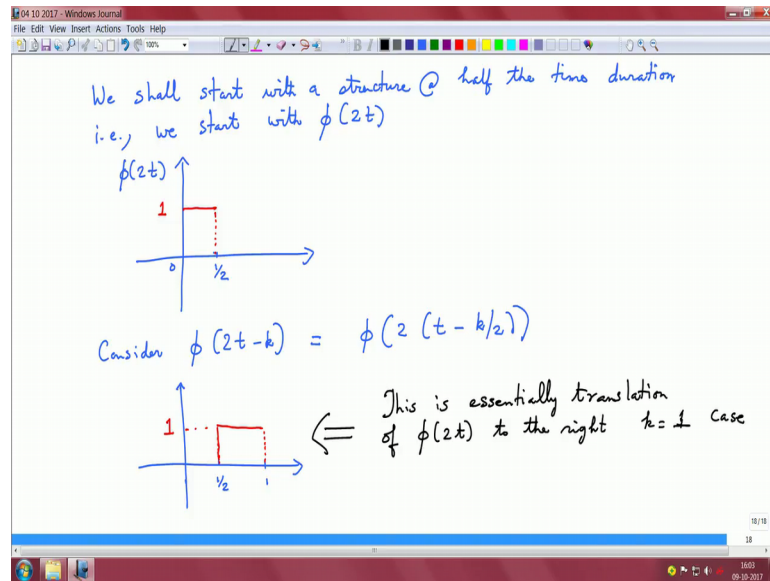 04 10 2017 - Windows Journal
File Edit View Insert Actions Tools Help
100%
B I
We shall start with a structure @ half the time duration
i.e., we start with ϕ(2t)
ϕ(2t)
1
0 1/2
Consider ϕ(2t-k) = ϕ(2(t-k/2))
1
1/2 1
This is essentially translation
of ϕ(2t) to the right k=1 case
18/18
18
16:03
09-10-2017